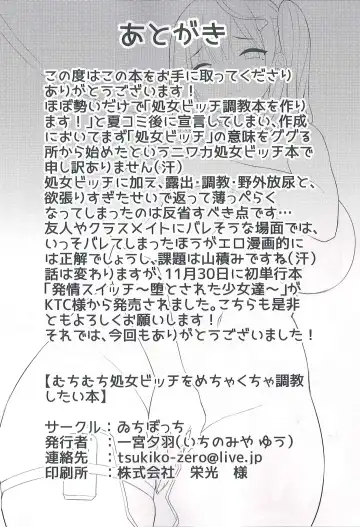 あとがき
この度はこの本をお手に取ってくださり
ありがとうございます！
ほぼ勢いだけで「処女ビッチ調教本を作り
ます！」と夏コミ後に宣言してしまい、作成
においてまず「処女ビッチ」の意味をググる
所から始めたというニワカ処女ビッチ本で
申し訳ありません(汗)
処女ビッチに加え、露出・調教・野外放尿と、
欲張りすぎたせいで返って薄っぺらく
なってしまったのは反省すべき点です…
友人やクラスメイトにバレそうな場面では、
いっそバレてしまったほうがエロ漫画的に
は正解でしょうし、課題は山積みですね(汗)
話は変わりますが、11月30日に初単行本
「発情スイッチ～堕とされた少女達～」が
KTC様から発売されました。こちらも是非
ともよろしくお願いします！
それでは、今回もありがとうございました！
【むちむち処女ビッチをめちゃくちゃ調教
したい本】
サークル：ゐちぼっち
発行者：一宮夕羽(いちのみや ゆう)
連絡先：tsukiko-zero@live.jp
印刷所：株式会社　栄光　様